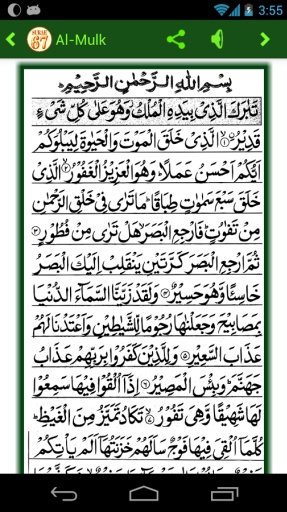 3:55
SURAH 67 Al-Mulk
بِسْمِ اللهِ الرَّحْمٰنِ الرَّحِيْمِ
تَبٰرَكَ الَّذِيْ بِيَدِهِ الْمُلْكُ وَهُوَ عَلٰى كُلِّ شَيْءٍ
قَدِيْرُ ۙ﴿۱﴾ الَّذِيْ خَلَقَ الْمَوْتَ وَالْحَيٰوةَ لِيَبْلُوَكُمْ
اَيُّكُمْ اَحْسَنُ عَمَلًا ؕ وَهُوَ الْعَزِيْزُ الْغَفُوْرُ ۙ﴿۲﴾ الَّذِيْ
خَلَقَ سَبْعَ سَمٰوٰتٍ طِبَاقًا ؕ مَا تَرٰى فِيْ خَلْقِ الرَّحْمٰنِ
مِنْ تَفٰوُتٍ ؕ فَارْجِعِ الْبَصَرَ ۙ هَلْ تَرٰى مِنْ فُطُوْرٍ ﴿۳﴾
ثُمَّ ارْجِعِ الْبَصَرَ كَرَّتَيْنِ يَنْقَلِبْ اِلَيْكَ الْبَصَرُ
خَاسِئًا وَّهُوَ حَسِيْرٌ ﴿۴﴾ وَلَقَدْ زَيَّنَّا السَّمَآءَ الدُّنْيَا
بِمَصَابِيْحَ وَجَعَلْنٰهَا رُجُوْمًا لِّلشَّيٰطِيْنِ وَاَعْتَدْنَا لَهُمْ
عَذَابَ السَّعِيْرِ ﴿۵﴾ وَلِلَّذِيْنَ كَفَرُوْا بِرَبِّهِمْ عَذَابُ
جَهَنَّمَ ؕ وَبِئْسَ الْمَصِيْرُ ﴿۶﴾ اِذَاۤ اُلْقُوْا فِيْهَا سَمِعُوْا
لَهَا شَهِيْقًا وَّهِيَ تَفُوْرُ ۙ﴿۷﴾ تَكَادُ تَمَيَّزُ مِنَ الْغَيْظِ ؕ
كُلَّمَاۤ اُلْقِيَ فِيْهَا فَوْجٌ سَاَلَهُمْ خَزَنَتُهَاۤ اَلَمْ يَاْتِكُمْ